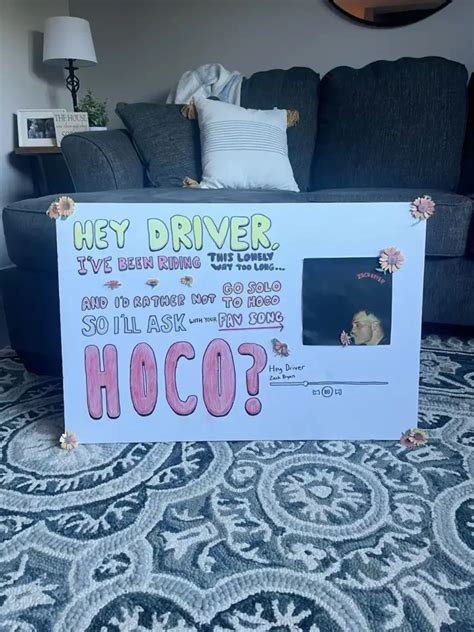 HEY DRIVER,
I'VE BEEN RIDING THIS LONELY WAY TOO LONG...
AND I'D RATHER NOT GO SOLO TO HOCO
SO I'LL ASK WITH YOUR FAV SONG
HOCO?
ZACH BRYAN
Hey Driver
Zach Bryan
THE HOUSE